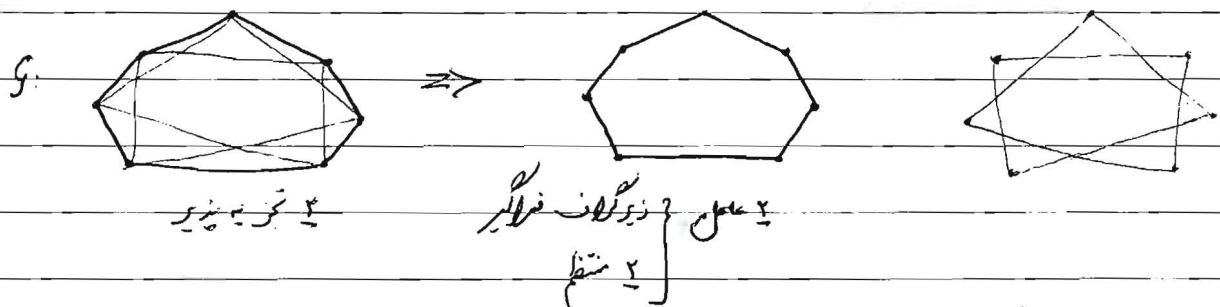 G:
⇒
۲ تجزیه پذیر
۲ عامل { زیرگراف فراگیر
۲ منتظم